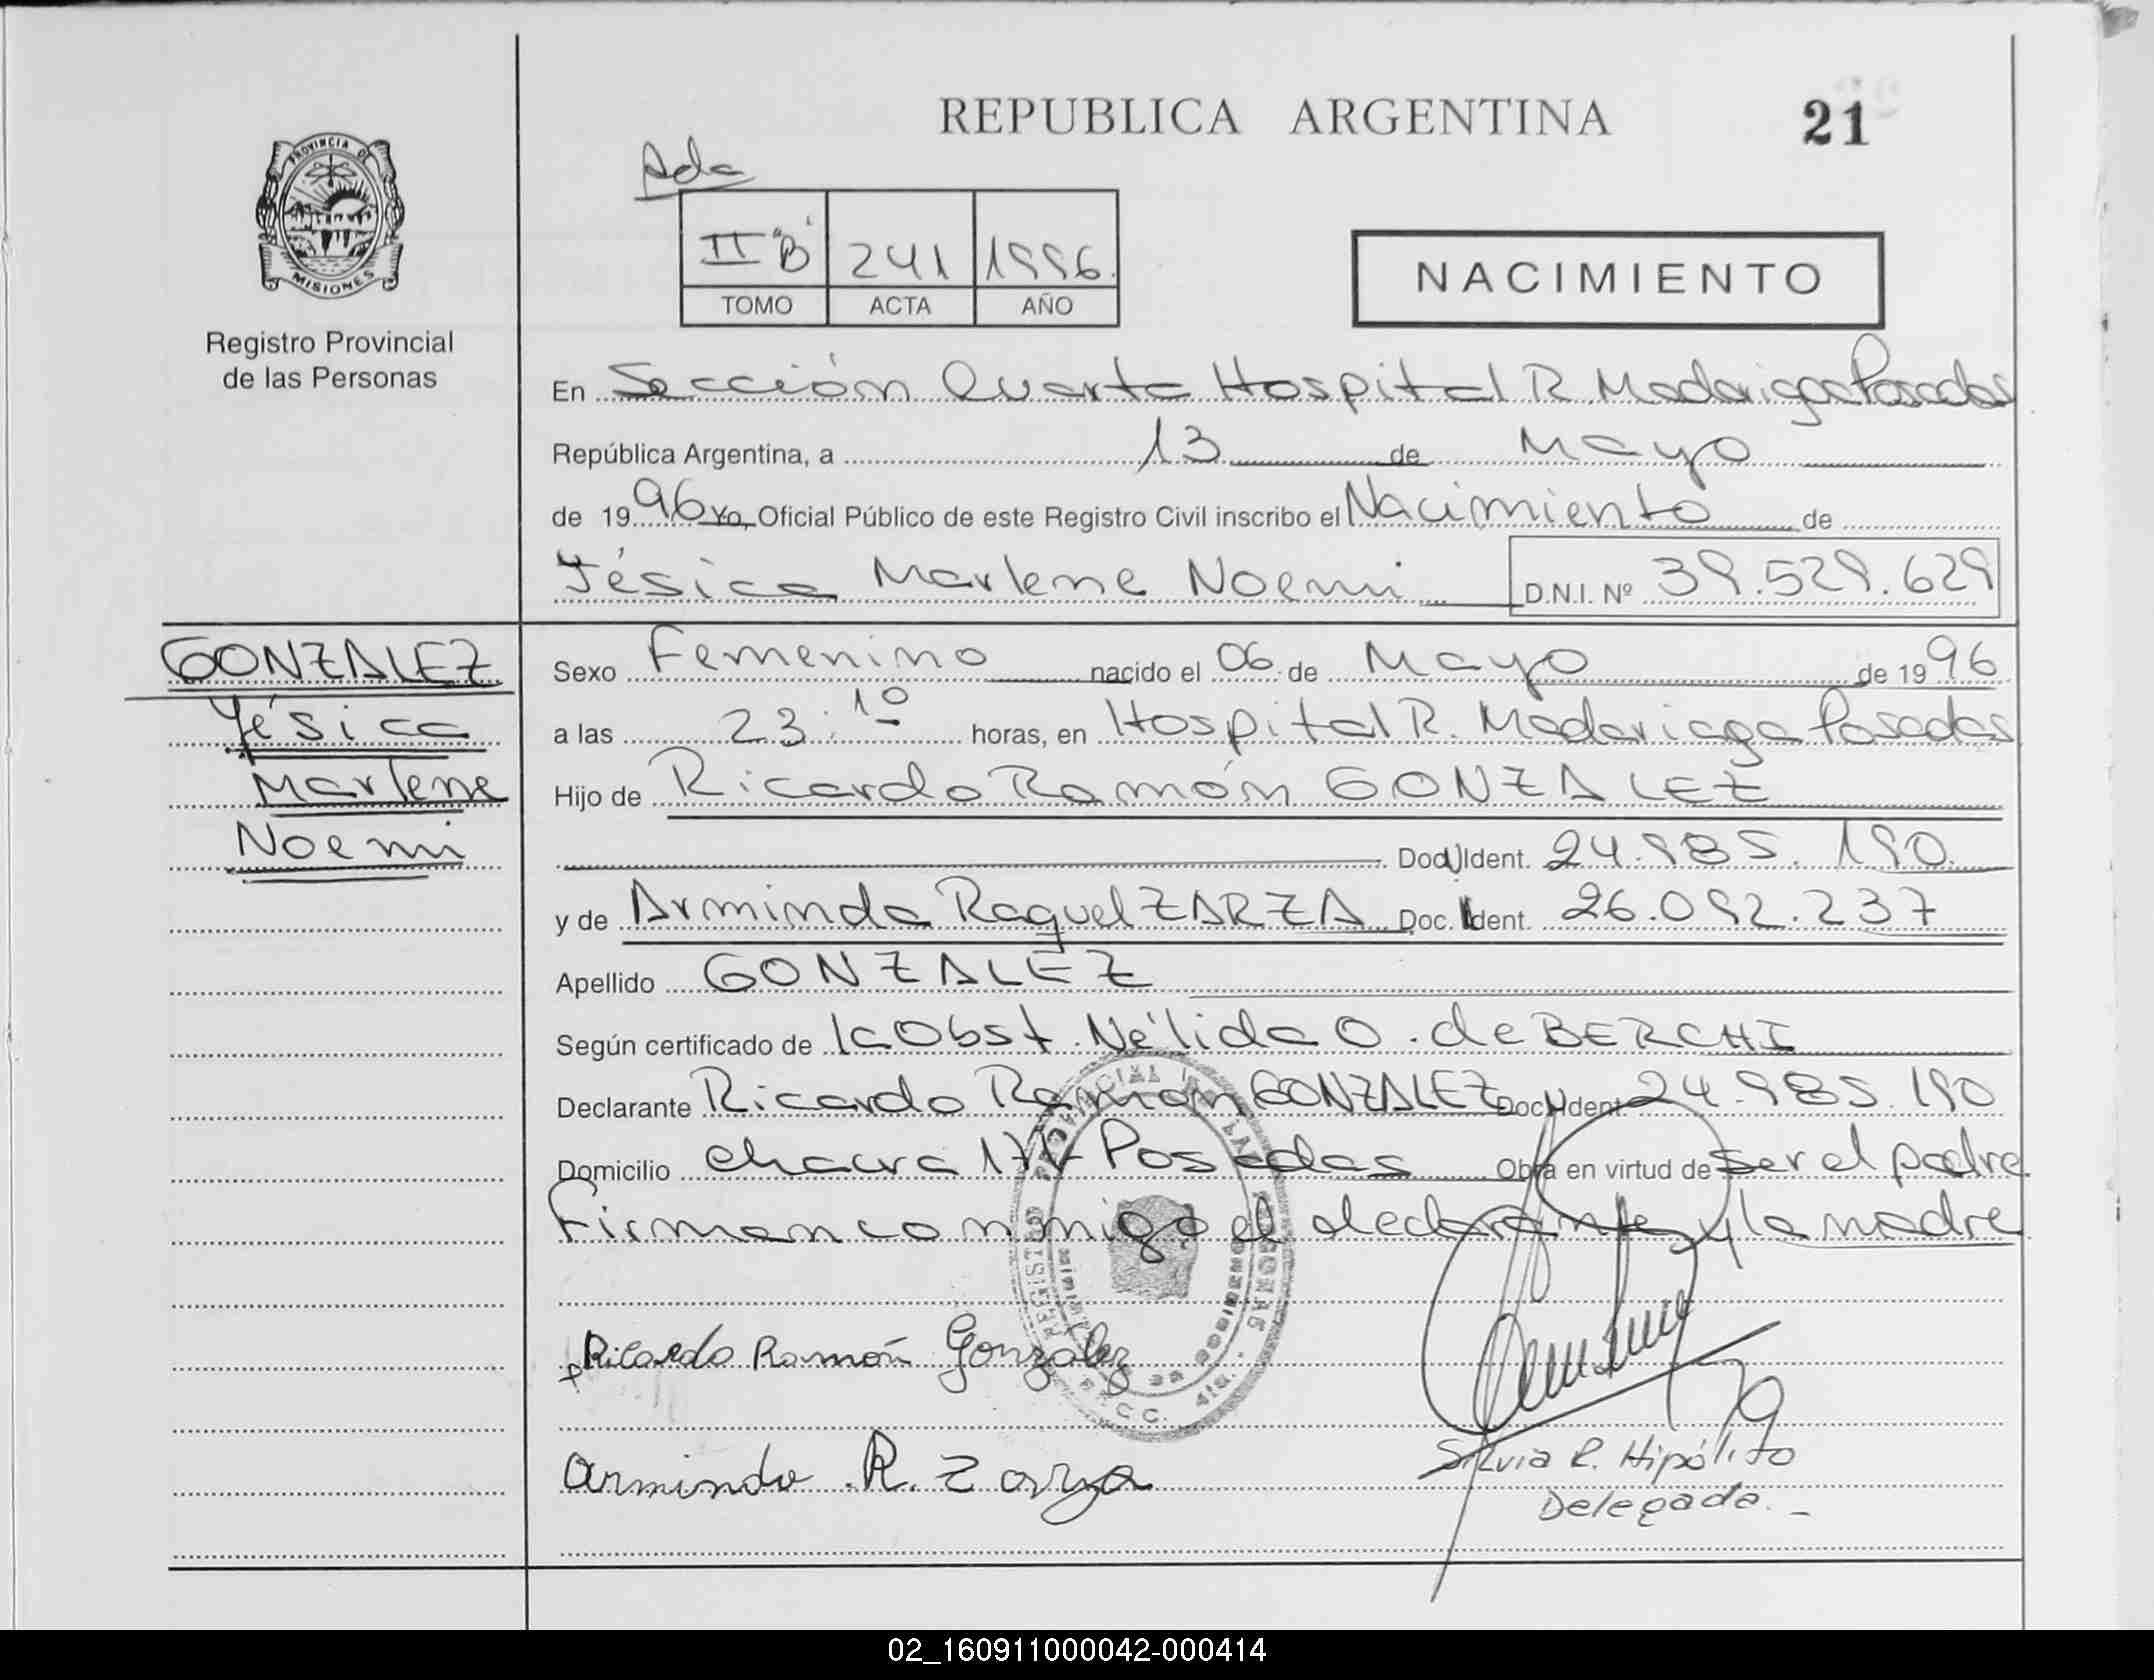 REPUBLICA ARGENTINA
21
PROVINCIA DE
MISIONES
Registro Provincial
de las Personas
Ada
II "B" 241 1996.
TOMO ACTA AÑO
NACIMIENTO
En Sección Cuarta Hospital R. Madariaga Posadas
República Argentina, a 13 de Mayo
de 1996 Yo, Oficial Público de este Registro Civil inscribo el Nacimiento de
Yésica Marlene Noemi D.N.I. Nº 39.529.629
GONZALEZ
Yésica
Marlene
Noemi
Sexo Femenino nacido el 06 de Mayo de 1996
a las 23:10 horas, en Hospital R. Madariaga Posadas
Hijo de Ricardo Ramón GONZALEZ
Doc. Ident. 24.985.190
y de Arminda Raquel ZARZA Doc. Ident. 26.092.237
Apellido GONZALEZ
Según certificado de la Obst. Nélida O. de BERCHI
Declarante Ricardo Ramón GONZALEZ Doc. Ident 24.985.190
Domicilio chacra Posadas Obra en virtud de ser el padre
Firman conmigo el declarante y la madre
Ricardo Ramón González
Arminda R. Zarza
Silvia R. Hipólito
Delegada.-
02_160911000042-000414